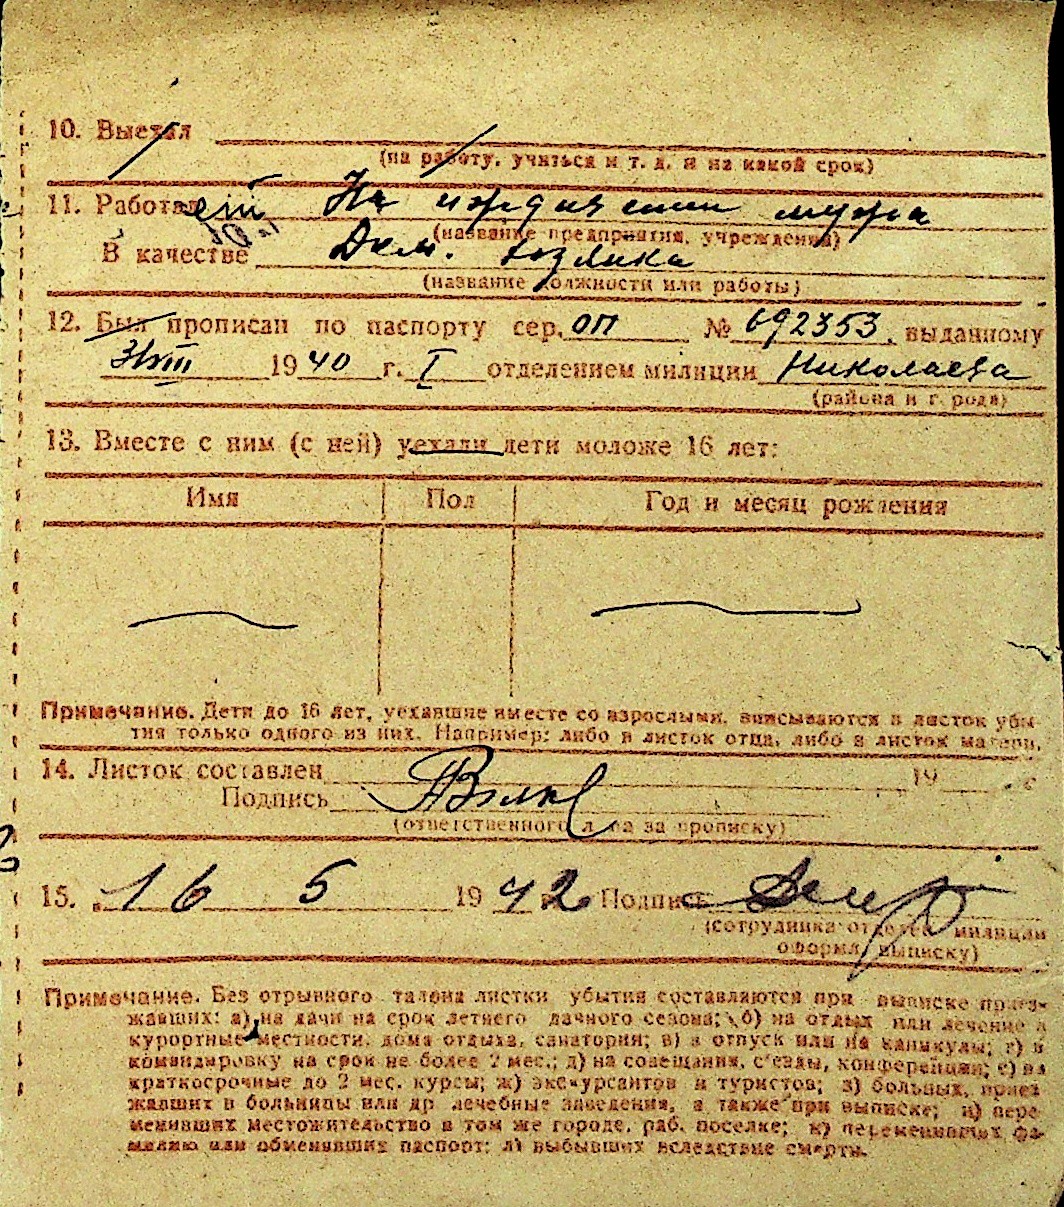 10. Выехал
(на работу, учиться и т. д. и на какой срок)
11. Работает На иждивении мужа
(название предприятия, учреждения)
В качестве Дом. хозяйка
(название должности или работы)
12. Был прописан по паспорту сер. ОП № 692353, выданному
1940 г. I отделением милиции Николаева
(района и города)
13. Вместе с ним (с ней) уехали дети моложе 16 лет:
Имя Пол Год и месяц рождения
Примечание. Дети до 16 лет, уехавшие вместе со взрослыми, вписываются в листок убы-
тия только одного из них. Например: либо в листок отца, либо в листок матери.
14. Листок составлен 19 г.
Подпись
(ответственного лица за прописку)
15. 16 5 1942 г. Подпись
(сотрудника отделен. милиции
оформл. выписку)
Примечание. Без отрывного талона листки убытия составляются при выписке приез-
жавших: а) на дачи на срок летнего дачного сезона; б) на отдых или лечение в
курортные местности, дома отдыха, санатории; в) в отпуск или на каникулы; г) в
командировку на срок не более 2 мес.; д) на совещания, с'езды, конференции; е) на
краткосрочные до 2 мес. курсы; ж) экскурсантов и туристов; з) больных, приез
жавших в больницы или др лечебные заведения, а также при выписке; и) пере
менивших местожительство в том же городе, раб. поселке; к) переменивших фа-
милию или обменявших паспорт; л) выбывших вследствие смерти.